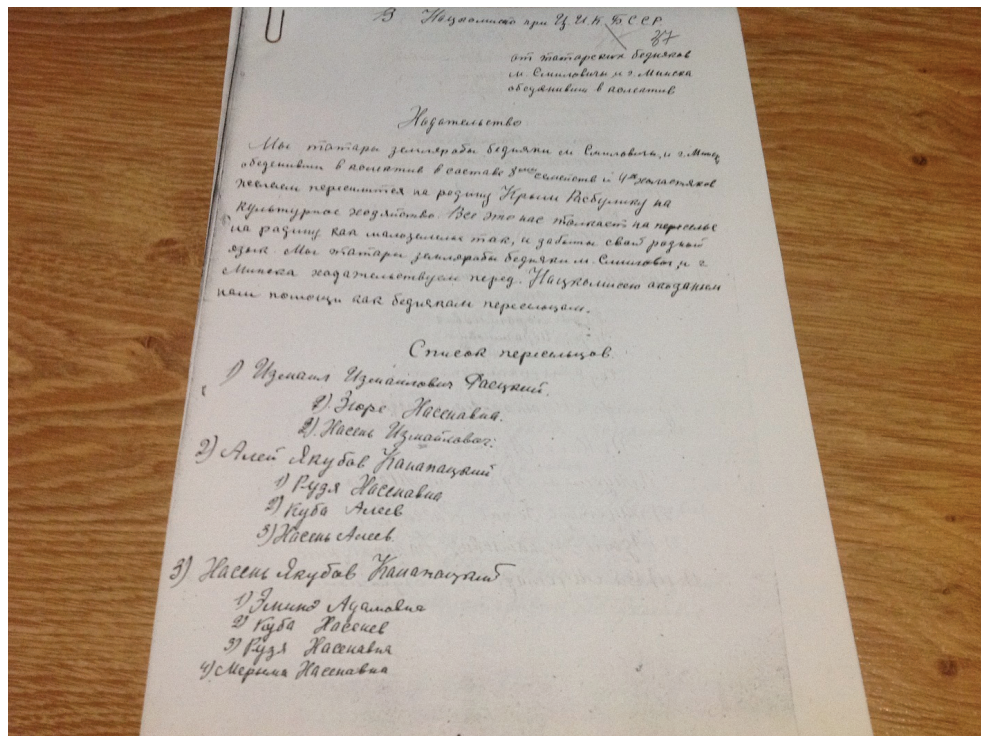 В Нацкомисю при Ц.И.К. Б.С.С.Р.
37
от татарских бедняков
м. Смиловичы, и г. Минска
обеденивши в колектив
Ходательство.
Мы татары земляробы бедняки м Смиловичы, и г. Минск
обеденивши в колектив в составе 8 семейств и 4х халастяков
желаем переселится на родину Крым Расбулику на
культурное ходяйство. Все это нас толкает на переселье
на радину как малоземелье так, и забыты свай родной
язык. Мы татары земляробы бедняки м. Смилович, и г
Минска ходательствуем перед. Нацкомисею аказанием
нам помощи как беднякам переселцам.
Список переселцов.
1) Измаил Измаилович Расцкий.
1). Зюре Хассенавна.
2). Хассень Измайлович.
2) Алей Якубов Канапацкий
1) Рудя Хассенавна
2) Куба Алеев
3) Хассень Алеев.
3) Хассень Якубов Канапацкий
1) Эминэ Адамовна
2) Куба Хассенев
3) Рудя Хассенавня
4) Мерьема Хассенавна